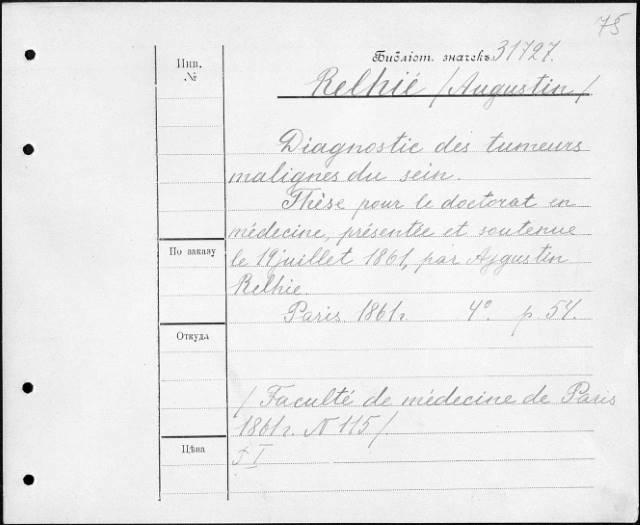 75
Инв. №
Библіот. значекъ 31727.
Relhié /Augustin/
Diagnostic des tumeurs
malignes du sein.
Thèse pour le doctorat en
médecine, présentée et soutenue
По заказу
le 19 juillet 1861, par Ajgustin
Relhie.
Paris. 1861г. 4º. p. 54.
Откуда
/ Faculté de médecine de Paris
1861г. N 115/.
Цѣна